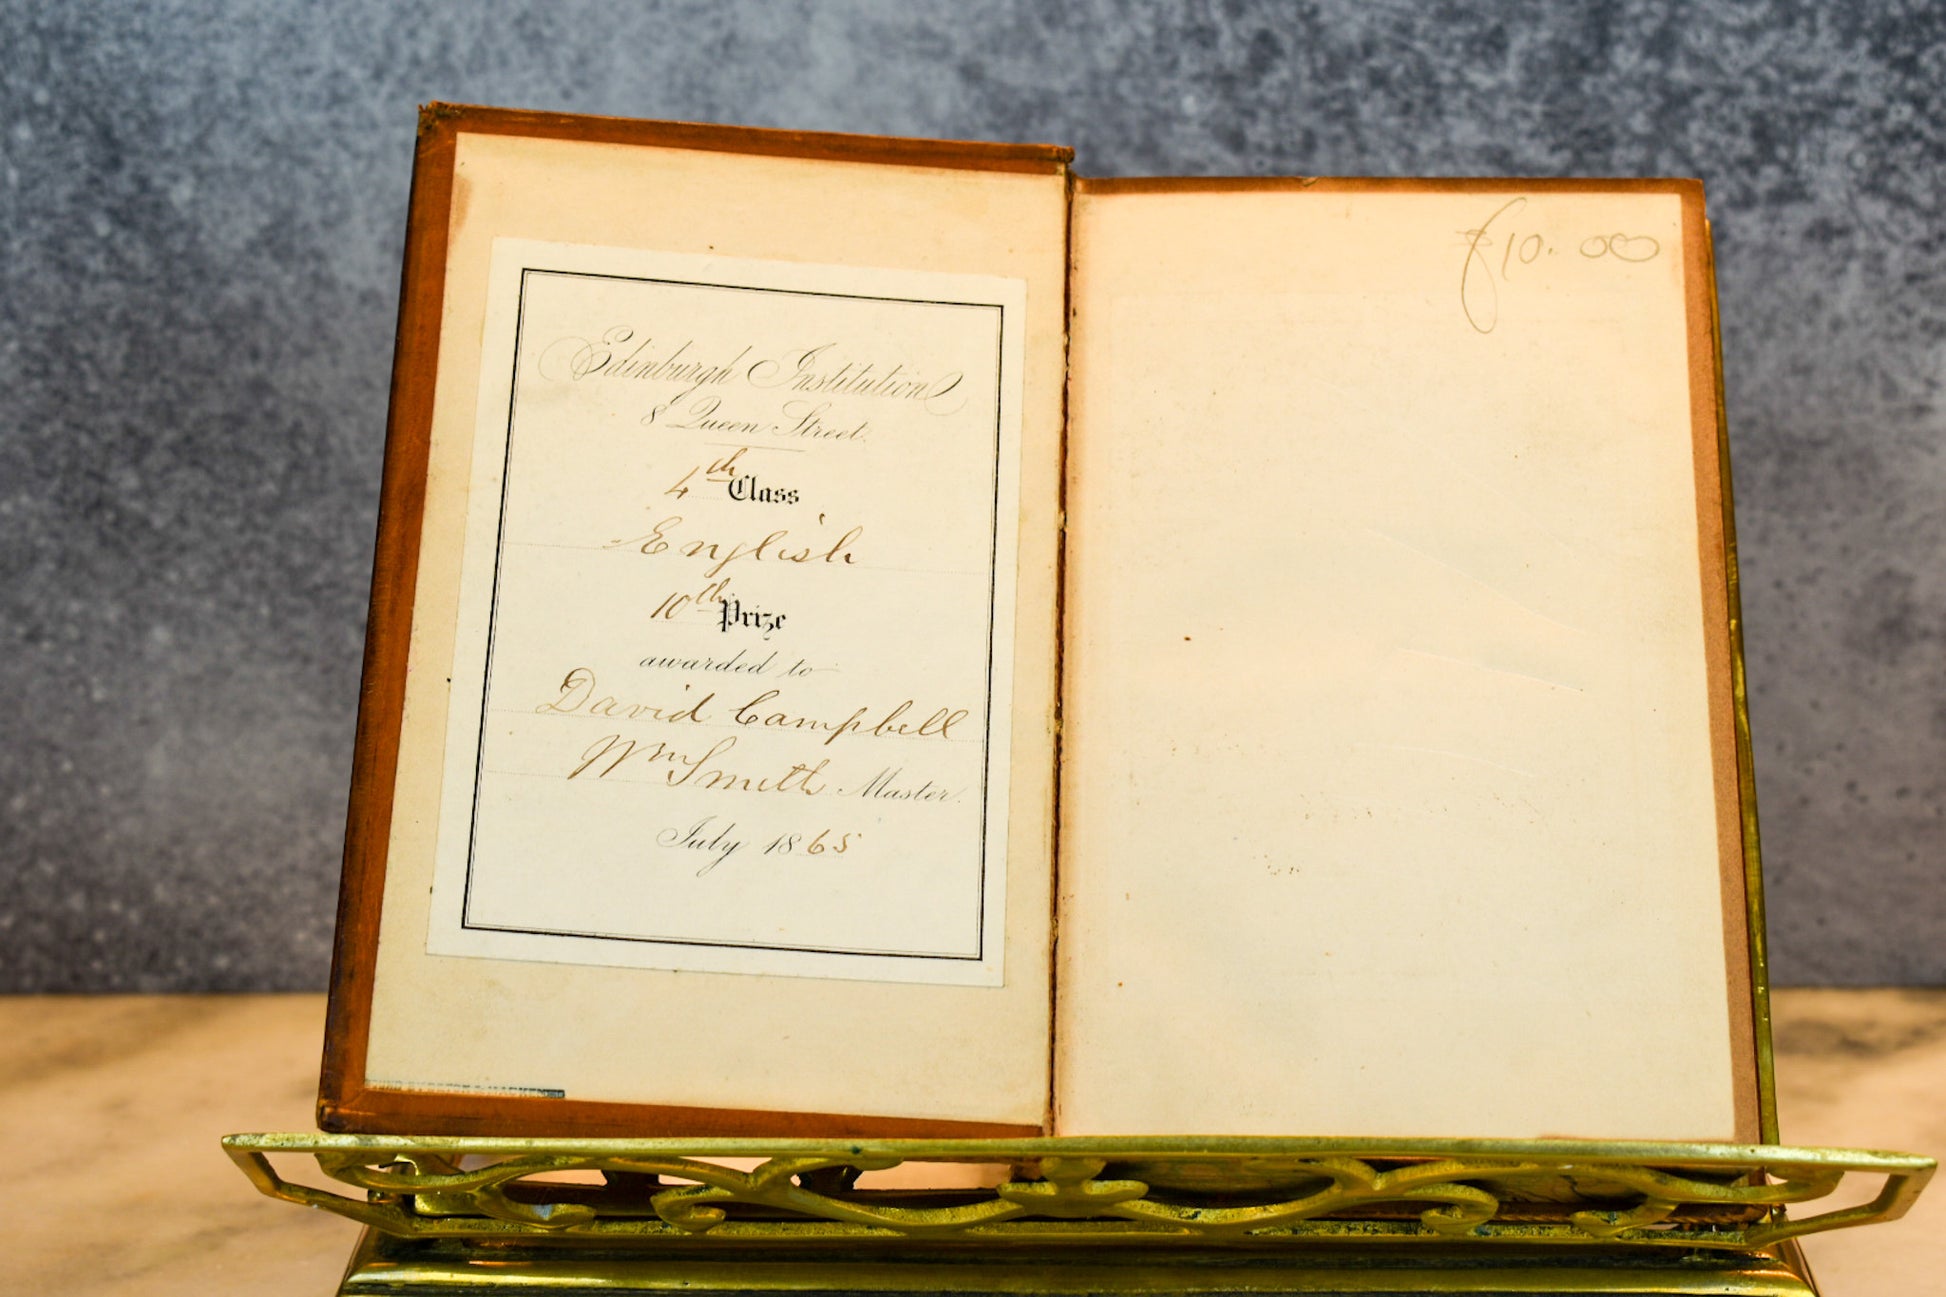 Edinburgh Institution
8 Queen Street.
4th Class
English
10th Prize
awarded to
David Campbell
Wm Smith Master.
July 1865
£10.00